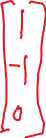 1
-1
0